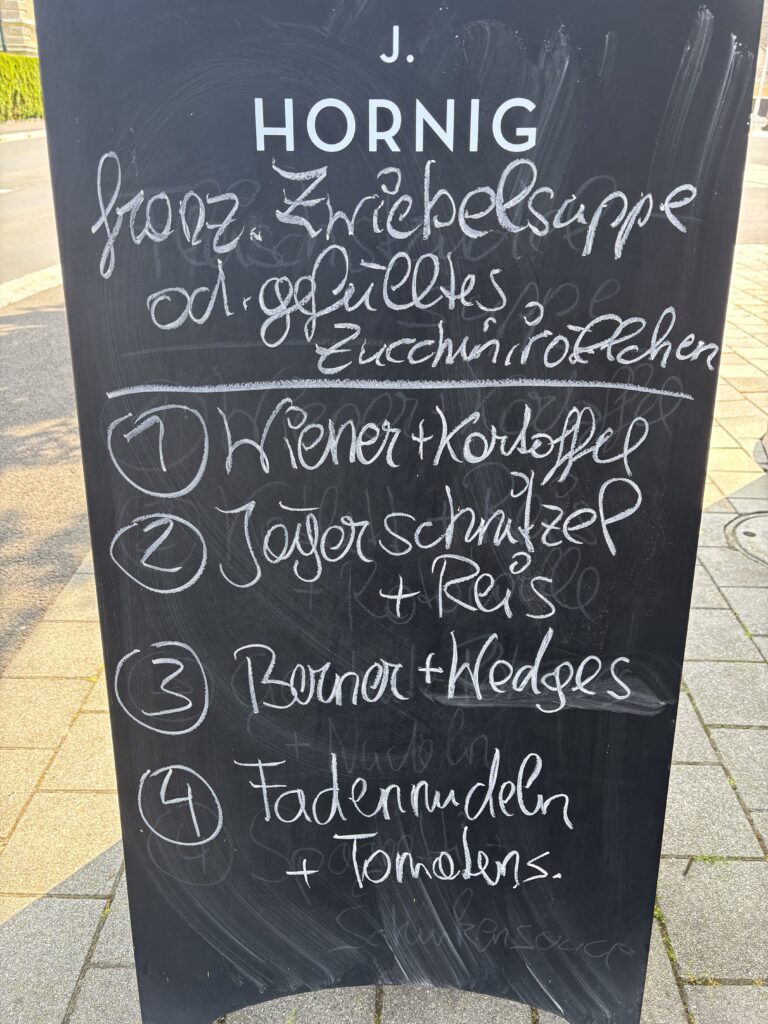 J.
HORNIG
franz. Zwiebelsuppe
od. gefülltes
Zucchiniröllchen
1 Wiener + Kartoffel
2 Jägerschnitzel
+ Reis
3 Berner + Wedges
4 Fadennudeln
+ Tomatens.
+ Nudeln
Schinkensauce